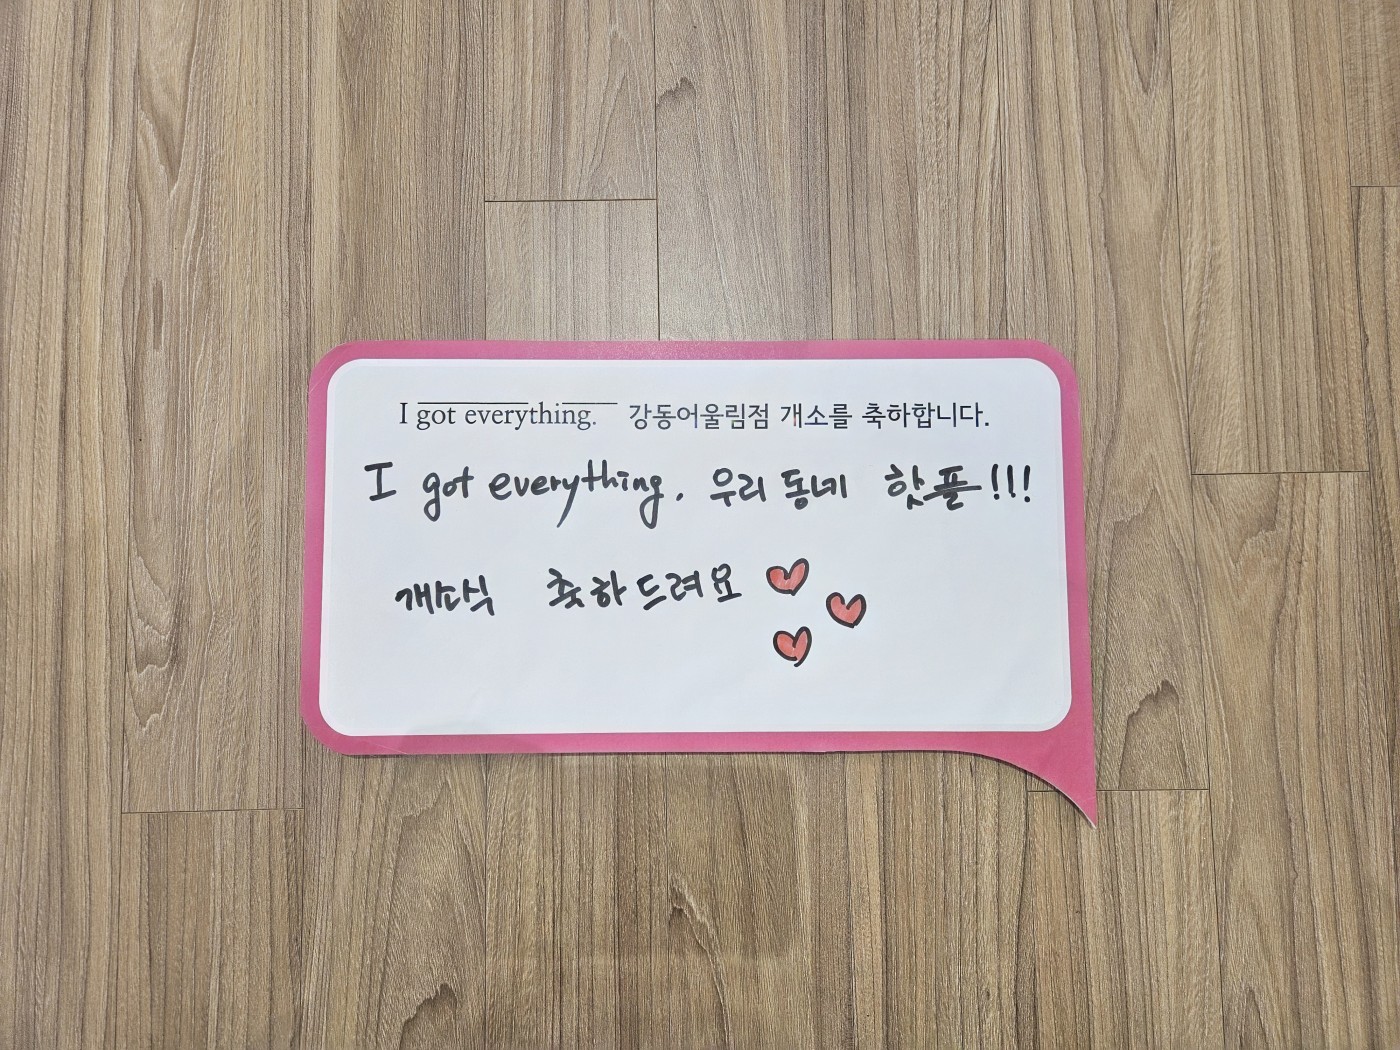 I got everything. 강동어울림점 개소를 축하합니다.
I got everything. 우리 동네 핫플!!!
개소식 축하드려요